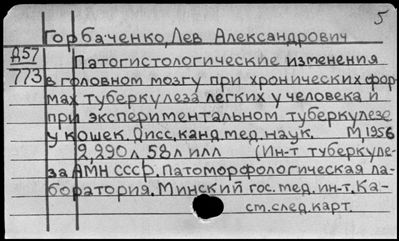 5
Горбаченко, Лев Александрович
Д57
773
Патогистологические изменения
в головном мозгу при хронических фор-
мах туберкулеза легких у человека и
при экспериментальном туберкулезе
у кошек. Дисс. канд. мед. наук. М, 1956
2,290 л, 58 л илл (Ин-т туберкуле-
за АМН СССР. Патоморфологическая ла-
боратория. Минский гос. мед. ин-т. Ка-
ст. след. карт.